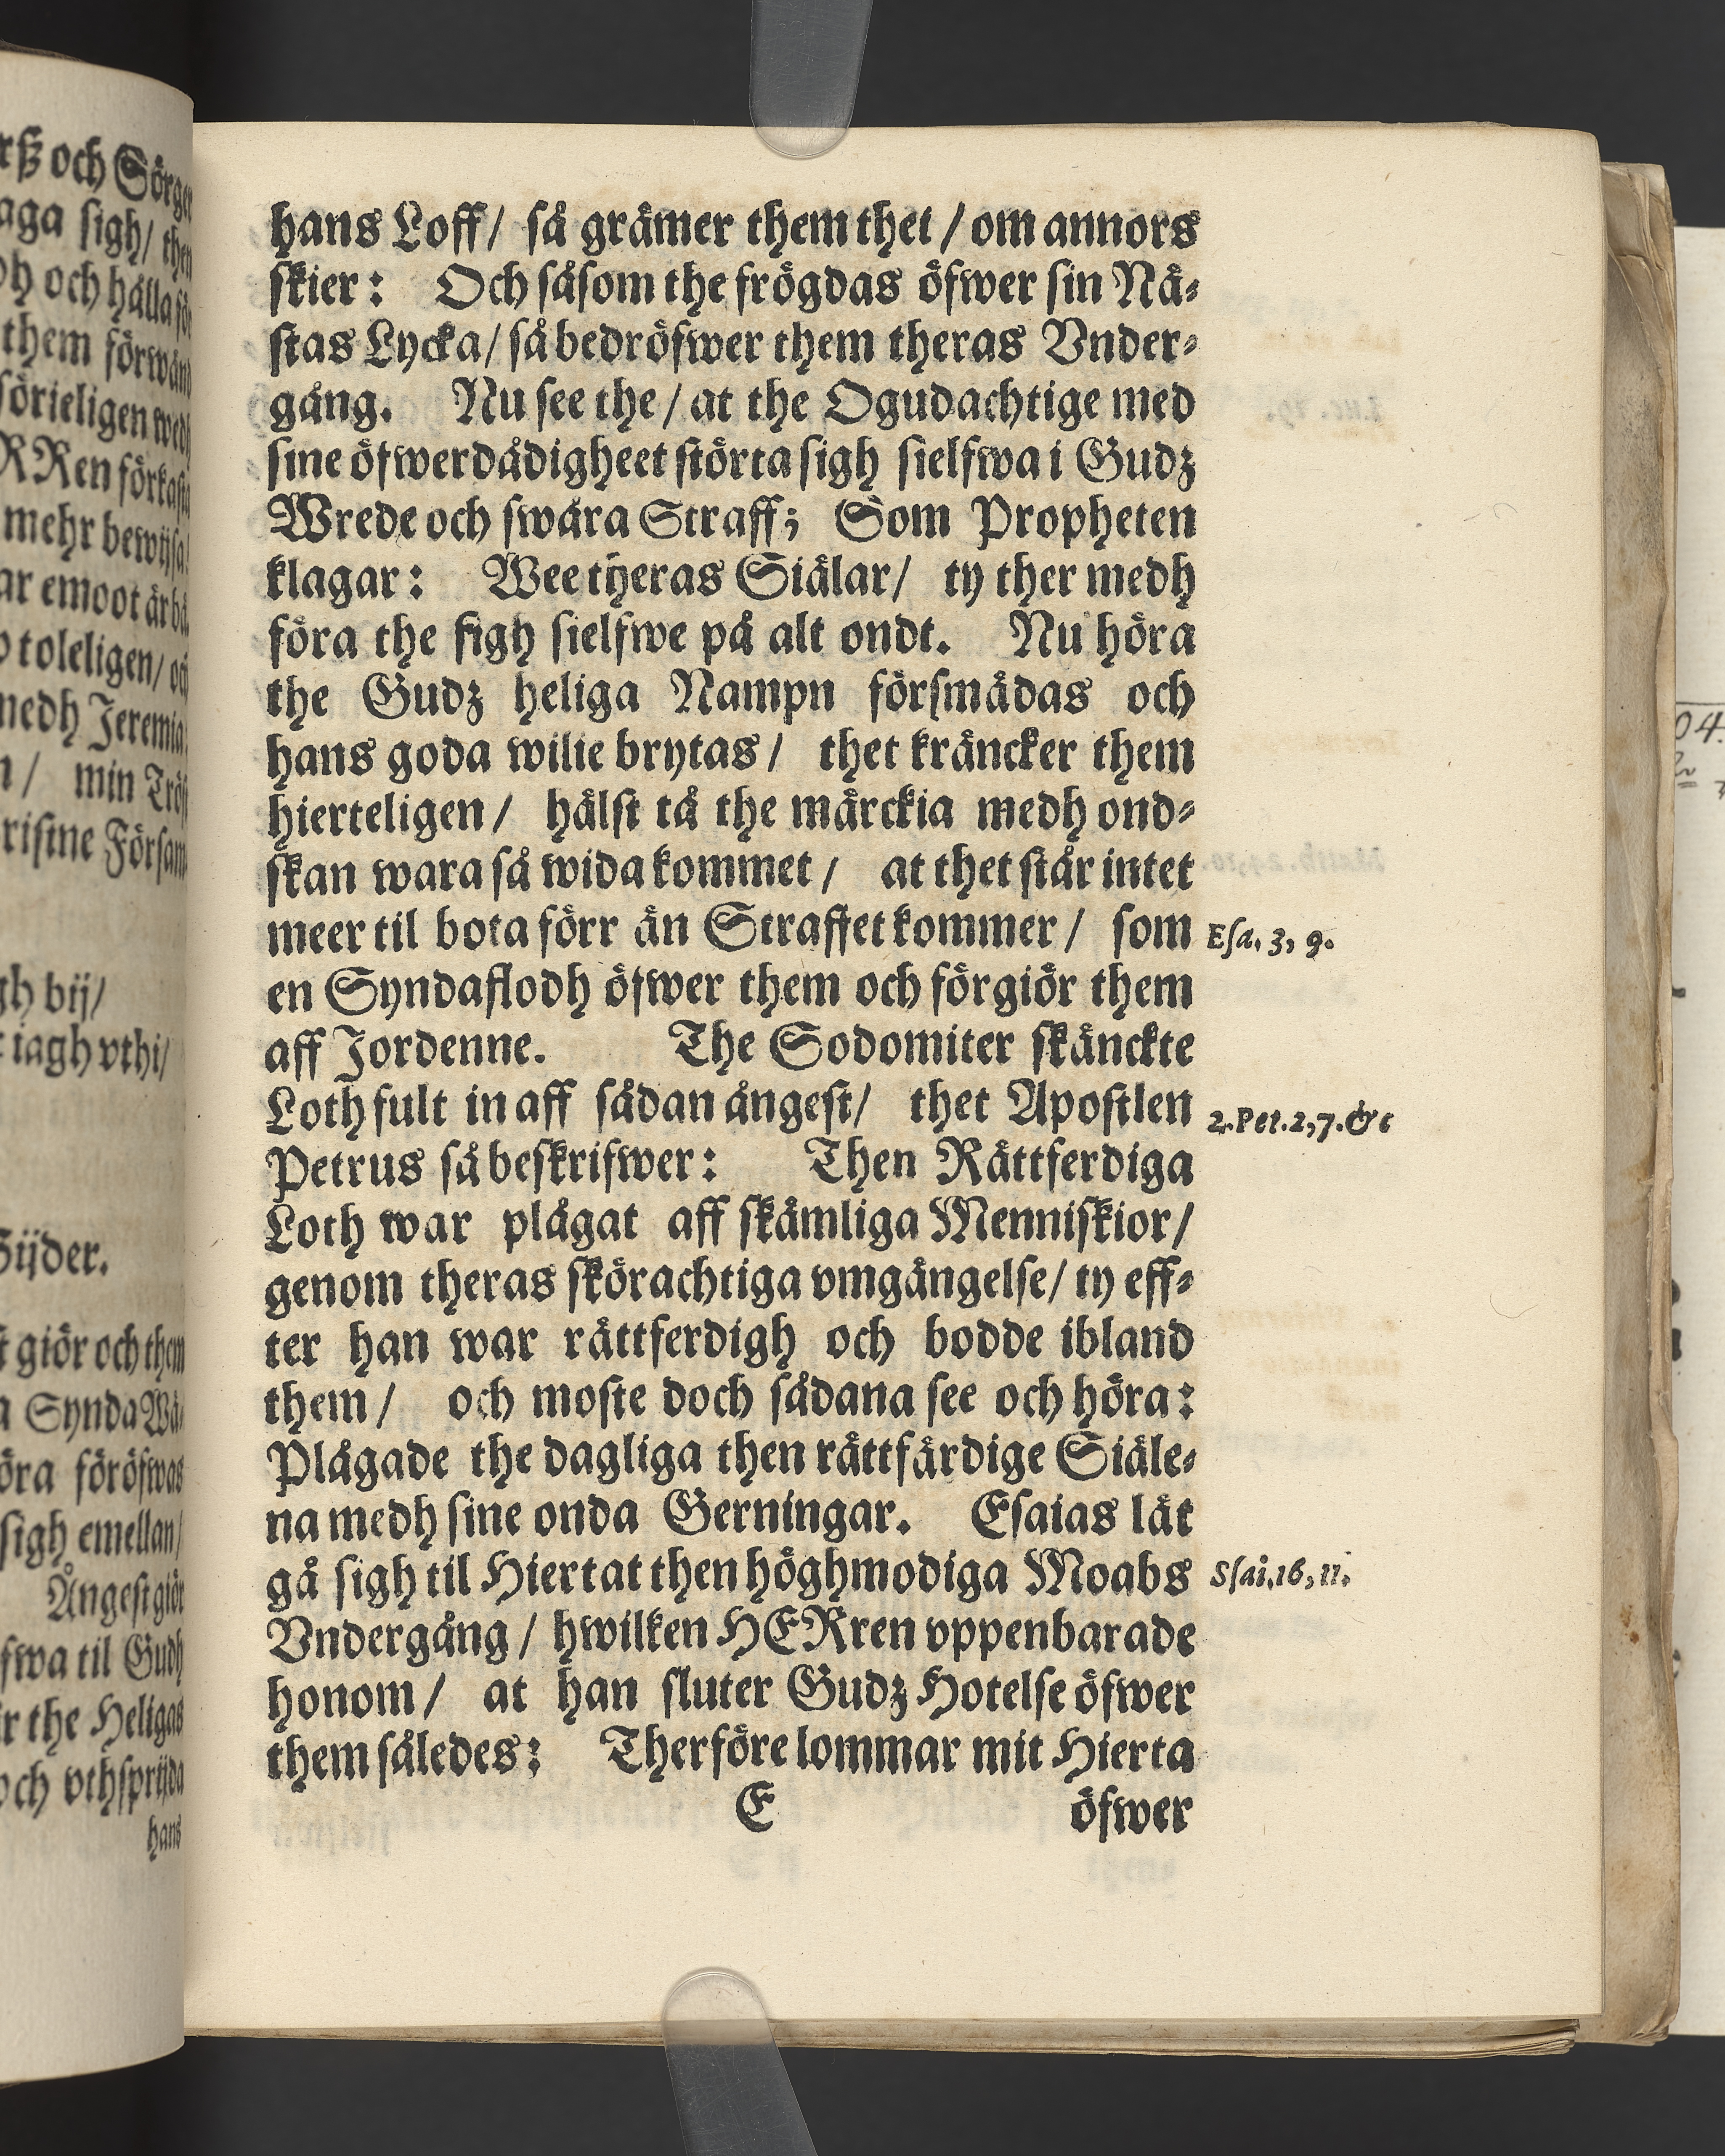 hans Loff/ så grämer them thet / om annors
skier: Och såsom the frögdas öfwer sin Nä-
stas Lycka/ så bedröfwer them theras Vnder-
gång. Nu see the / at the Ogudachtige med
sine öfwerdådigheet störta sigh sielfwa i Gudz
Wrede och swåra Straff; Som Propheten
klagar: Wee theras Siälar/ ty ther medh
föra the sigh sielfwe på alt ondt. Nu höra
the Gudz heliga Nampn försmädas och
hans goda wilie brytas / thet kräncker them
hierteligen / hälst tå the märckia medh ond-
skan wara så wida kommet / at thet står intet
meer til bota förr än Straffet kommer / som
Esa. 3, 9.
en Syndaflodh öfwer them och förgiör them
aff Jordenne. The Sodomiter skänckte
Loth fult in aff sådan ångest/ thet Apostlen
2. Pet. 2, 7. &c
Petrus så beskrifwer: Then Rättferdiga
Loth war plågat aff skämliga Menniskior/
genom theras skörachtiga vmgängelse/ ty eff-
ter han war rättferdigh och bodde ibland
them / och moste doch sådana see och höra:
Plågade the dagliga then rättfärdige Siäle-
na medh sine onda Gerningar. Esaias lät
gå sigh til Hiertat then höghmodiga Moabs
Sſai. 16, 11.
Vndergång / hwilken HERren vppenbarade
honom / at han sluter Gudz Hotelse öfwer
them således: Therföre lommar mit Hierta
E öfwer
rß och Sörge
aga sigh/ then
och hålla
them förwänd
RRen förkasta
mehr bewijsa
ar emoot är
toleligen/
medh Jeremia
min Tröst
gh bij/
iagh vthi/
Sijder.
giör och them
Synda
föröfwas
sigh emellan/
Ångest giör
til Gudh
the Heligas
och vthsprijda
hans
04.